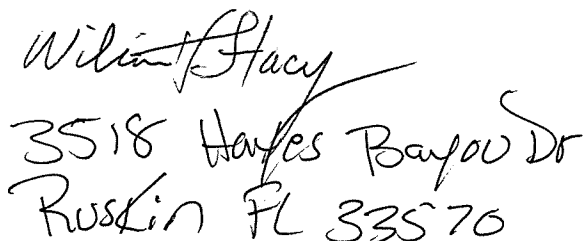 William F. Stacy
3518 Hayes Bayou Dr
Ruskin FL 33570